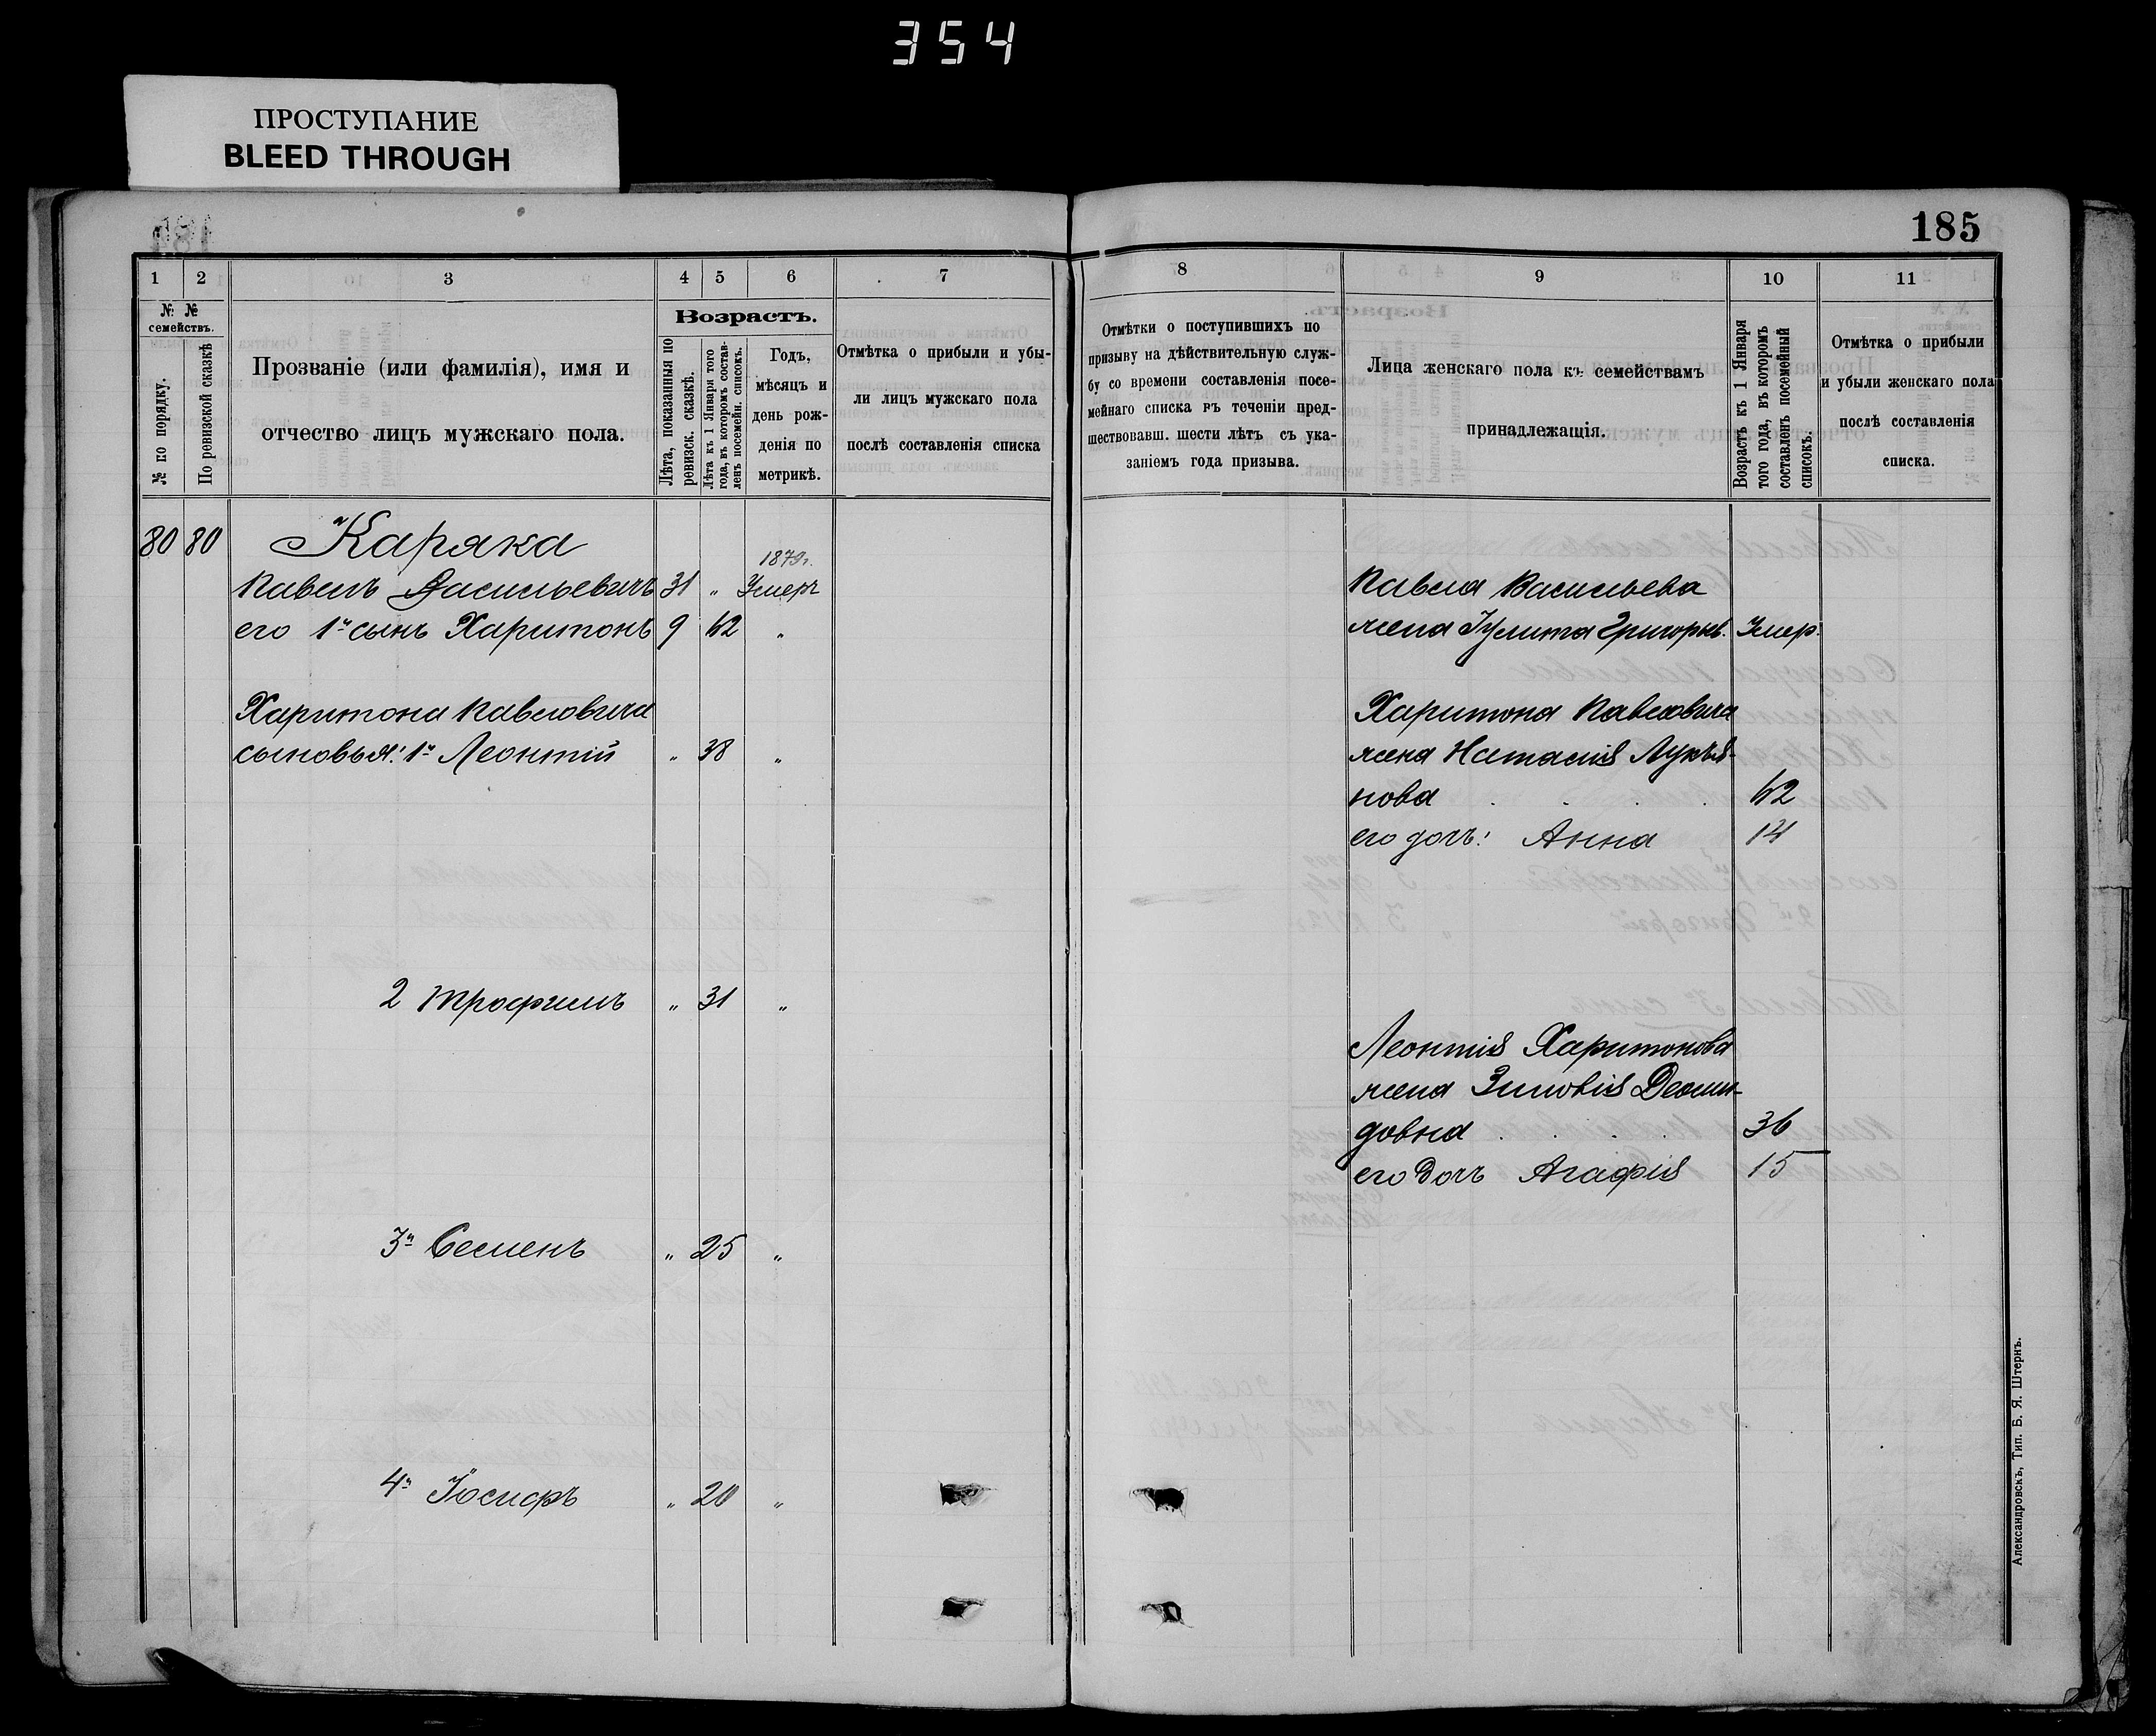 354
ПРОСТУПАНИЕ
BLEED THROUGH
185
1 2 3 4 5 6 7
№ № семействъ.
№ по порядку.
По ревизской сказкѣ
Прозваніе (или фамилія), имя и
отчество лицъ мужскаго пола.
Возрастъ.
Лѣта, показанныя по
ревизск. сказкѣ.
Лѣта къ 1 Января того
года, въ которомъ состав-
ленъ посемейн. списокъ.
Годъ,
мѣсяцъ и
день рож-
денія по
метрикѣ.
Отмѣтка о прибыли и убы-
ли лицъ мужскаго пола
послѣ составленія списка
80 80 Каряка
1879г.
Павелъ Васильевичъ 31 „ Умеръ
его 1й сынъ Харитонъ 9 62 „
Харитона Павловича
сыновья: 1й Леонтій „ 38 „
2 Трофимъ „ 31 „
3й Семенъ „ 25 „
4й Іосифъ „ 20 „
8 9 10 11
Отмѣтки о поступившихъ по
призыву на дѣйствительную служ-
бу со времени составленія посе-
мейнаго списка въ теченіи пред-
шествовавш. шести лѣтъ съ ука-
заніемъ года призыва.
Лица женскаго пола къ семействамъ
принадлежащія.
Возрастъ къ 1 Января
того года, въ которомъ
составленъ посемейный
списокъ.
Отмѣтка о прибыли
и убыли женскаго пола
послѣ составленія
списка.
Павла Васильева
жена Іулита Григорьев. Умер.
Харитона Павловича
жена Натасія Лукья-
нова . . . . 62
его дочь: Анна 14
Леонтія Харитонова
жена Зиновія Деоми-
довна . . . . 36
его дочь Агафія 15
Александровскъ, Тип. Б. Я. Штернъ.